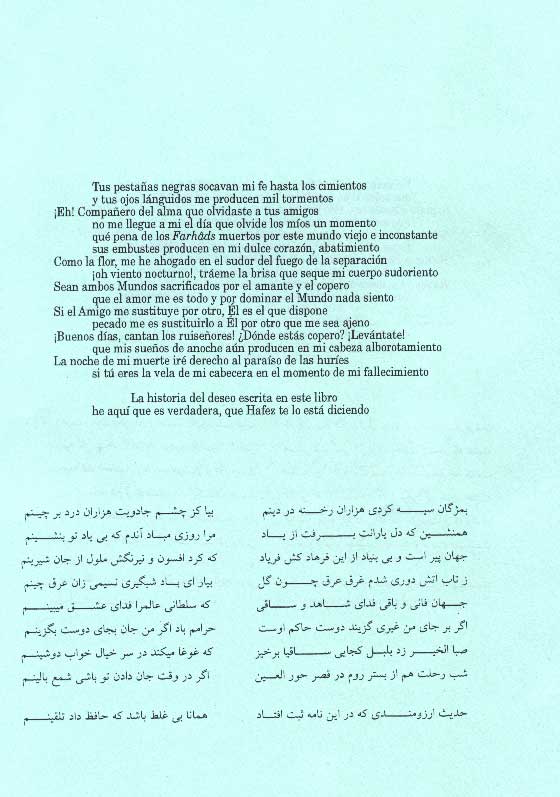 Tus pestañas negras socavan mi fe hasta los cimientos
y tus ojos lánguidos me producen mil tormentos
¡Eh! Compañero del alma que olvidaste a tus amigos
no me llegue a mi el día que olvide los míos un momento
qué pena de los Farhâds muertos por este mundo viejo e inconstante
sus embustes producen en mi dulce corazón, abatimiento
Como la flor, me he ahogado en el sudor del fuego de la separación
¡oh viento nocturno!, tráeme la brisa que seque mi cuerpo sudoriento
Sean ambos Mundos sacrificados por el amante y el copero
que el amor me es todo y por dominar el Mundo nada siento
Si el Amigo me sustituye por otro, Él es el que dispone
pecado me es sustituirlo a Él por otro que me sea ajeno
¡Buenos días, cantan los ruiseñores! ¿Dónde estás copero? ¡Levántate!
que mis sueños de anoche aún producen en mi cabeza alborotamiento
La noche de mi muerte iré derecho al paraíso de las huríes
si tú eres la vela de mi cabecera en el momento de mi fallecimiento
La historia del deseo escrita en este libro
he aquí que es verdadera, que Hafez te lo está diciendo
بمژگان سیه کردی هزاران رخنه در دینم بیا کز چشم جادویت هزاران درد بر چینم
همنشین که دل یارانت برفت از یاد مرا روزی مباد آندم که بی یاد تو بنشینم
جهان پیر است و بی بنیاد از این فرهاد کش فریاد که کرد افسون و نیرنگش ملول از جان شیرینم
ز تاب اتش دوری شدم غرق عرق چون گل بیار ای باد شبگیری نسیمی زان عرق چینم
جهان فانی و باقی فدای شاهد و ساقی که سلطانی عالمرا فدای عشق میبینم
اگر بر جای من غیری گزیند دوست حاکم اوست حرامم باد اگر من جان بجای دوست بگزینم
صبا الخیر زد بلبل کجایی ساقیا برخیز که غوغا میکند در سر خیال خواب دوشینم
شب رحلت هم از بستر روم در قصر حور العین اگر در وقت جان دادن تو باشی شمع بالینم
حدیث ارزومندی که در این نامه ثبت افتاد همانا بی غلط باشد که حافظ داد تلقینم